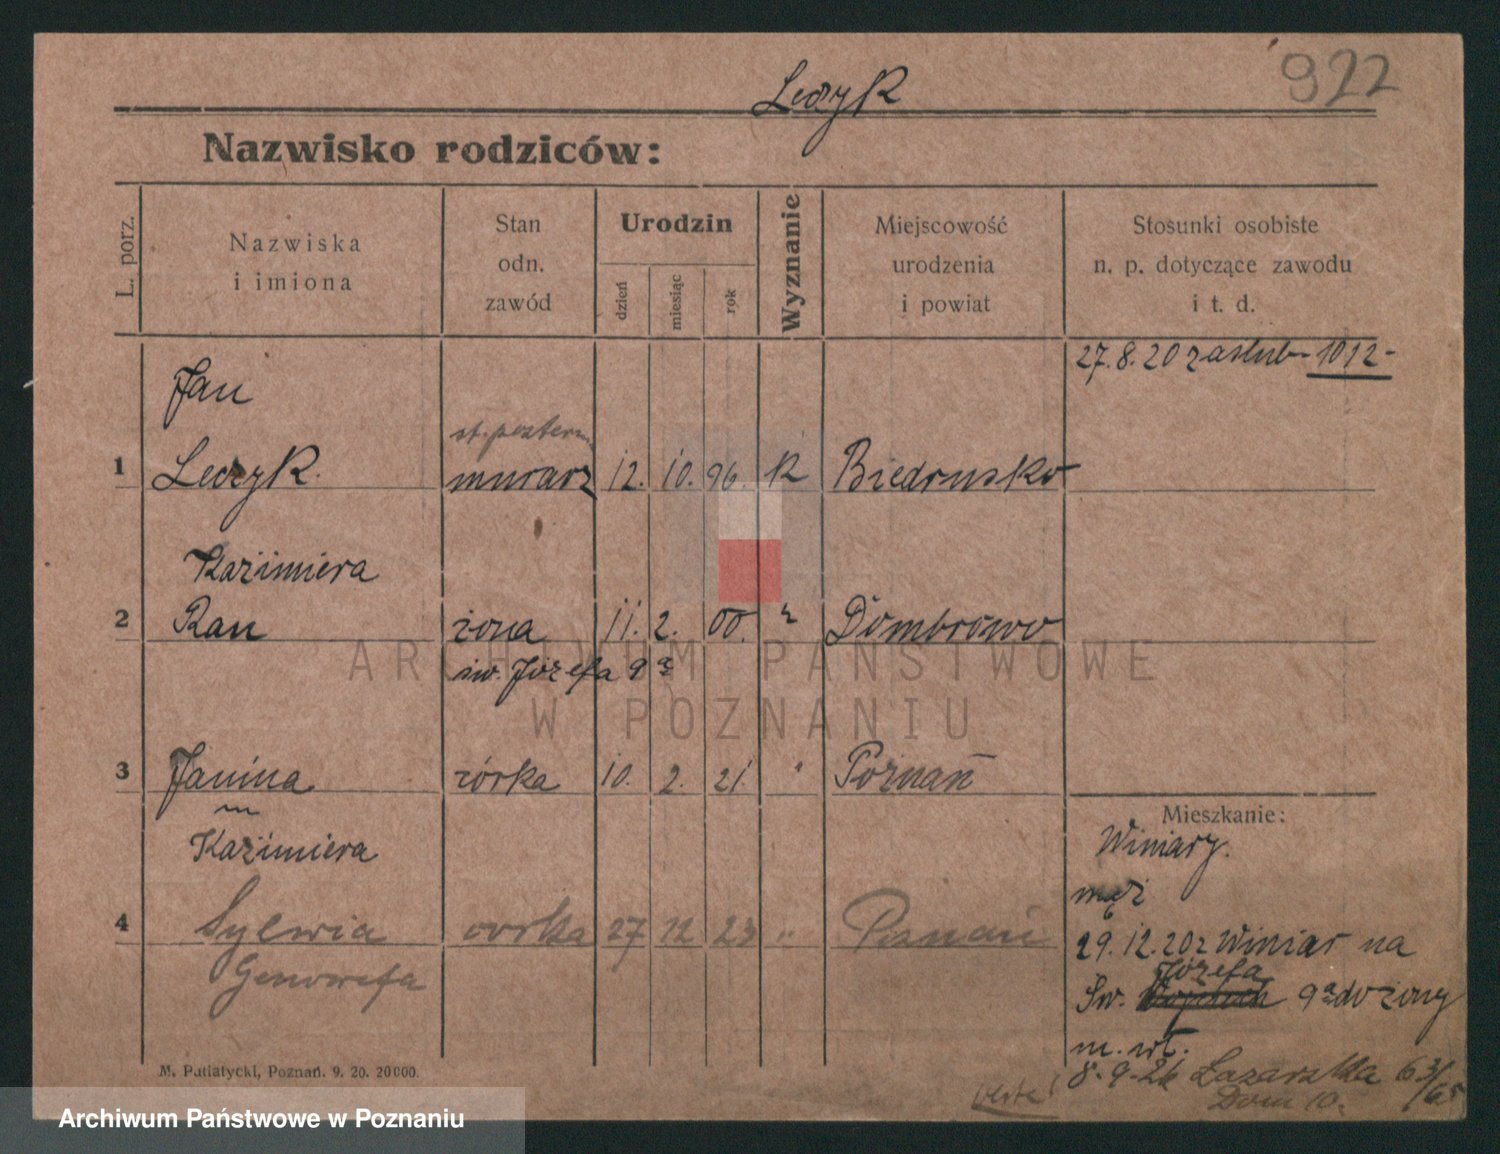 922
Leczyk
Nazwisko rodziców:
L. porz.
Nazwiska
i imiona
Stan
odn.
zawód
Urodzin
dzień
miesiąc
rok
Wyznanie
Miejscowość
urodzenia
i powiat
Stosunki osobiste
n. p. dotyczące zawodu
i t. d.
27.8.20 zaślub 1012-
Jan
1 Leczyk murarz 12. 10. 96. k Biedrusko
Kazimiera
2 Ran żona 11. 2. 00. " Dombrowo
św. Józefa 9a
3 Janina córka 10. 2. 21. " Poznań
Kazimiera
4 Sylwia córka 27 12 23 " Poznań
Genowefa
Mieszkanie:
Winiary.
mąż
29.12.20 z Winiar na
Józefa
Św. 9a do żony
m. wł.
8.9.26 Łazarska 63/65
Dom 10.
M. Putiatycki, Poznań. 9. 20. 20000.
ARCHIWUM PAŃSTWOWE
W POZNANIU
Archiwum Państwowe w Poznaniu